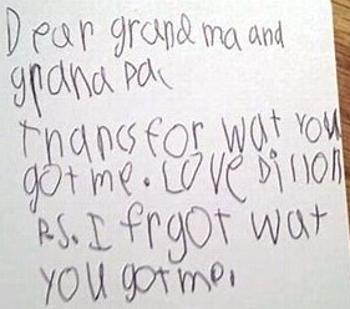 Dear grandma and
granapa
Thancs for wat you
got me. Love Dillon
P.S. I frgot wat
you got me.